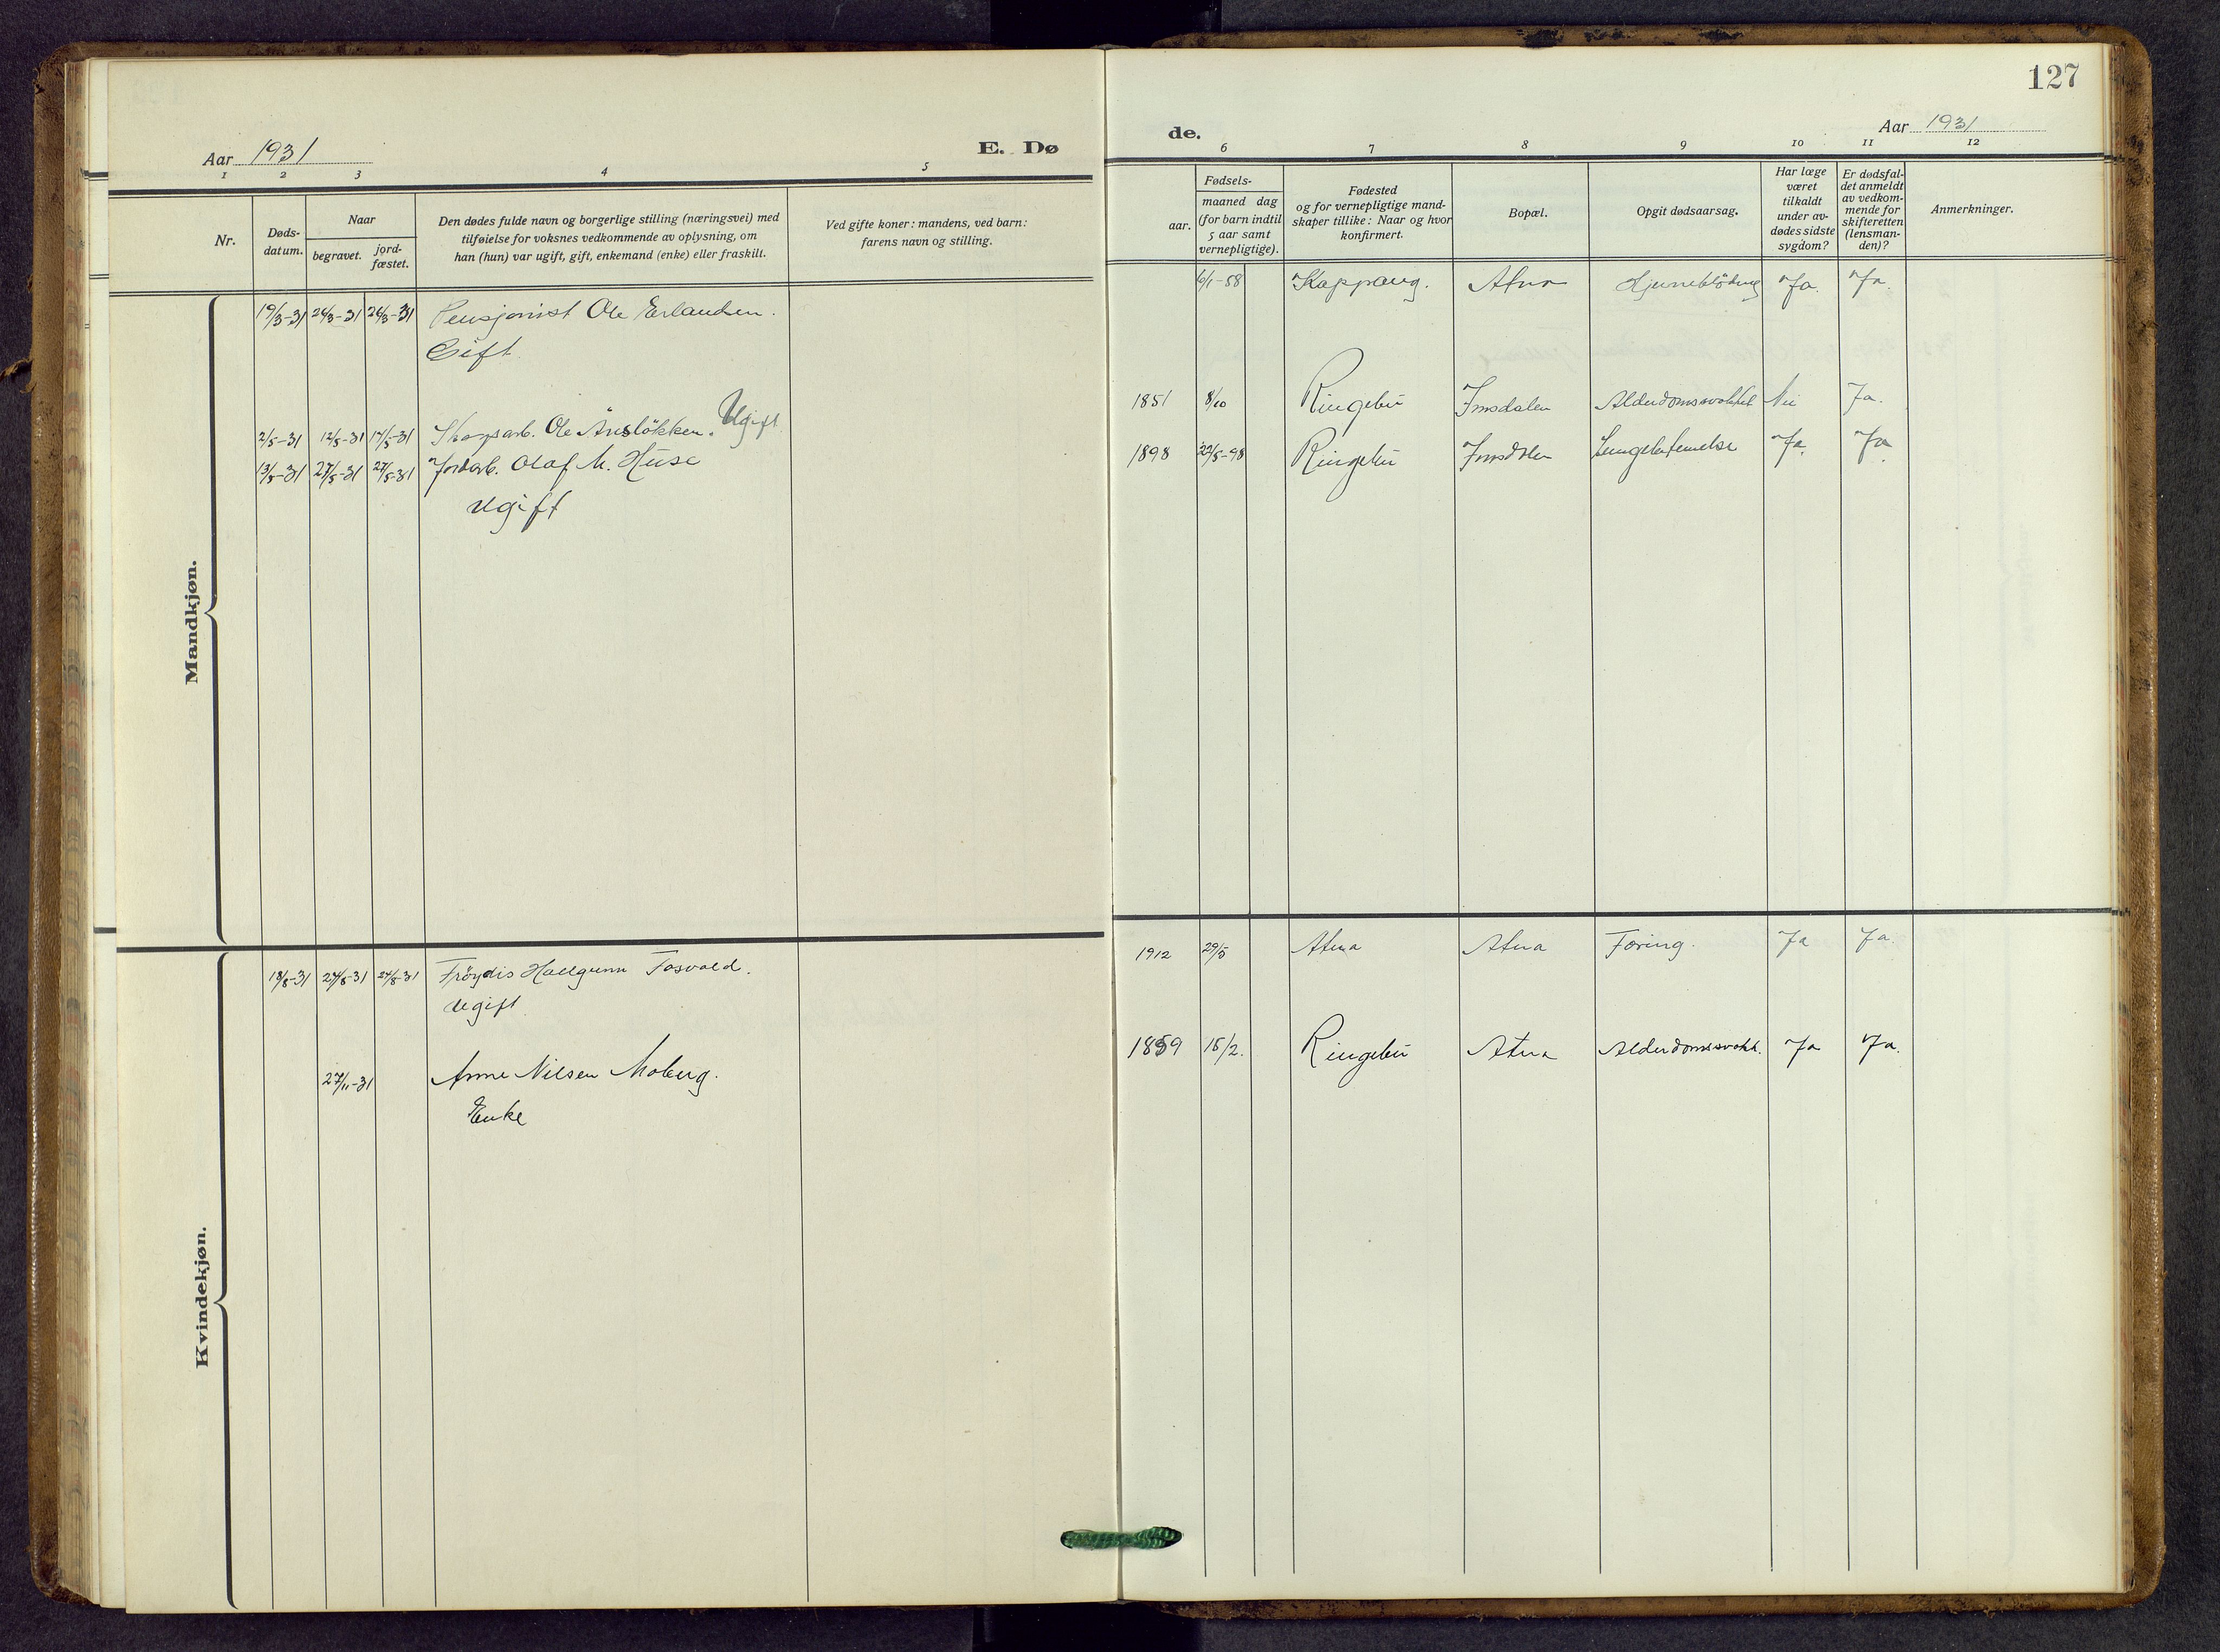 127
Aar 1931
E. Dø
de.
Aar 1931
1 2 3 4 5
6 7 8 9 10 11 12
Nr.
Døds-
datum.
Naar
begravet.
jord-
fæstet.
Den dødes fulde navn og borgerlige stilling (næringsvei) med
tilføielse for voksnes vedkommende av oplysning, om
han (hun) var ugift, gift, enkemand (enke) eller fraskilt.
Ved gifte koner: mandens, ved barn:
farens navn og stilling.
Fødsels-
aar.
maaned dag
(for barn indtil
5 aar samt
vernepligtige).
Fødested
og for vernepligtige mand-
skaper tillike: Naar og hvor
konfirmert.
Bopæl.
Opgit dødsaarsag.
Har læge
været
tilkaldt
under av-
dødes sidste
sygdom?
Er dødsfal-
det anmeldt
av vedkom-
mende for
skifteretten
(lensman-
den)?
Anmerkninger.
Mandkjøn.
19/3-31 26/3-31 26/3-31 Pensjonist Ole Erlandsen.
Gift.
6/1-58 Koppang. Atna Hjerneblödning Ja. Ja.
2/5-31 12/5-31 17/5-31 Skogsarb. Ole Åneslökken. Ugift
1851 8/10 Ringebu Imsdalen Alderdomssvakhet Nei Ja.
13/5-31 27/5-31 27/5-31 Jordarb. Olaf M. Huse
Ugift
1898 22/5-98 Ringebu Imsdalen Lungebetennelse Ja. Ja.
Kvindekjøn.
18/8-31 27/8-31 27/8-31 Fröydis Hallgunn Fosvold.
Ugift.
1912 29/5 Atna Atna Tæring. Ja Ja.
27/11-31 Anne Nilsen Moberg.
Enke
1859 15/2. Ringebu Atna Alderdomssvakh. Ja Ja.